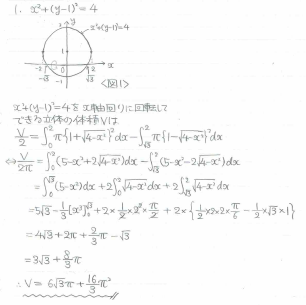 1. x²+(y-1)²=4
y
x²+(y-1)²=4
3
1
-2 0 2 x
-√3 -1 √3
<図1>
x²+(y-1)²=4をx軸回りに回転して
できる立体の体積Vは
V/2=∫₀²π{1+√(4-x²)}²dx-∫_√3^2 π{1-√(4-x²)}²dx
⇔V/2π=∫₀²(5-x²+2√(4-x²))dx-∫_√3^2(5-x²-2√(4-x²))dx
=∫₀^√3(5-x²)dx+2∫₀²√(4-x²)dx+2∫_√3^2√(4-x²)dx
=5√3-1/3[x³]₀^√3+2×1/2×2²×π/2+2×{1/2×2×2×π/6-1/2×√3×1}
=4√3+2π+2/3π-√3
=3√3+8/3π
∴V=6√3π+16/3π²